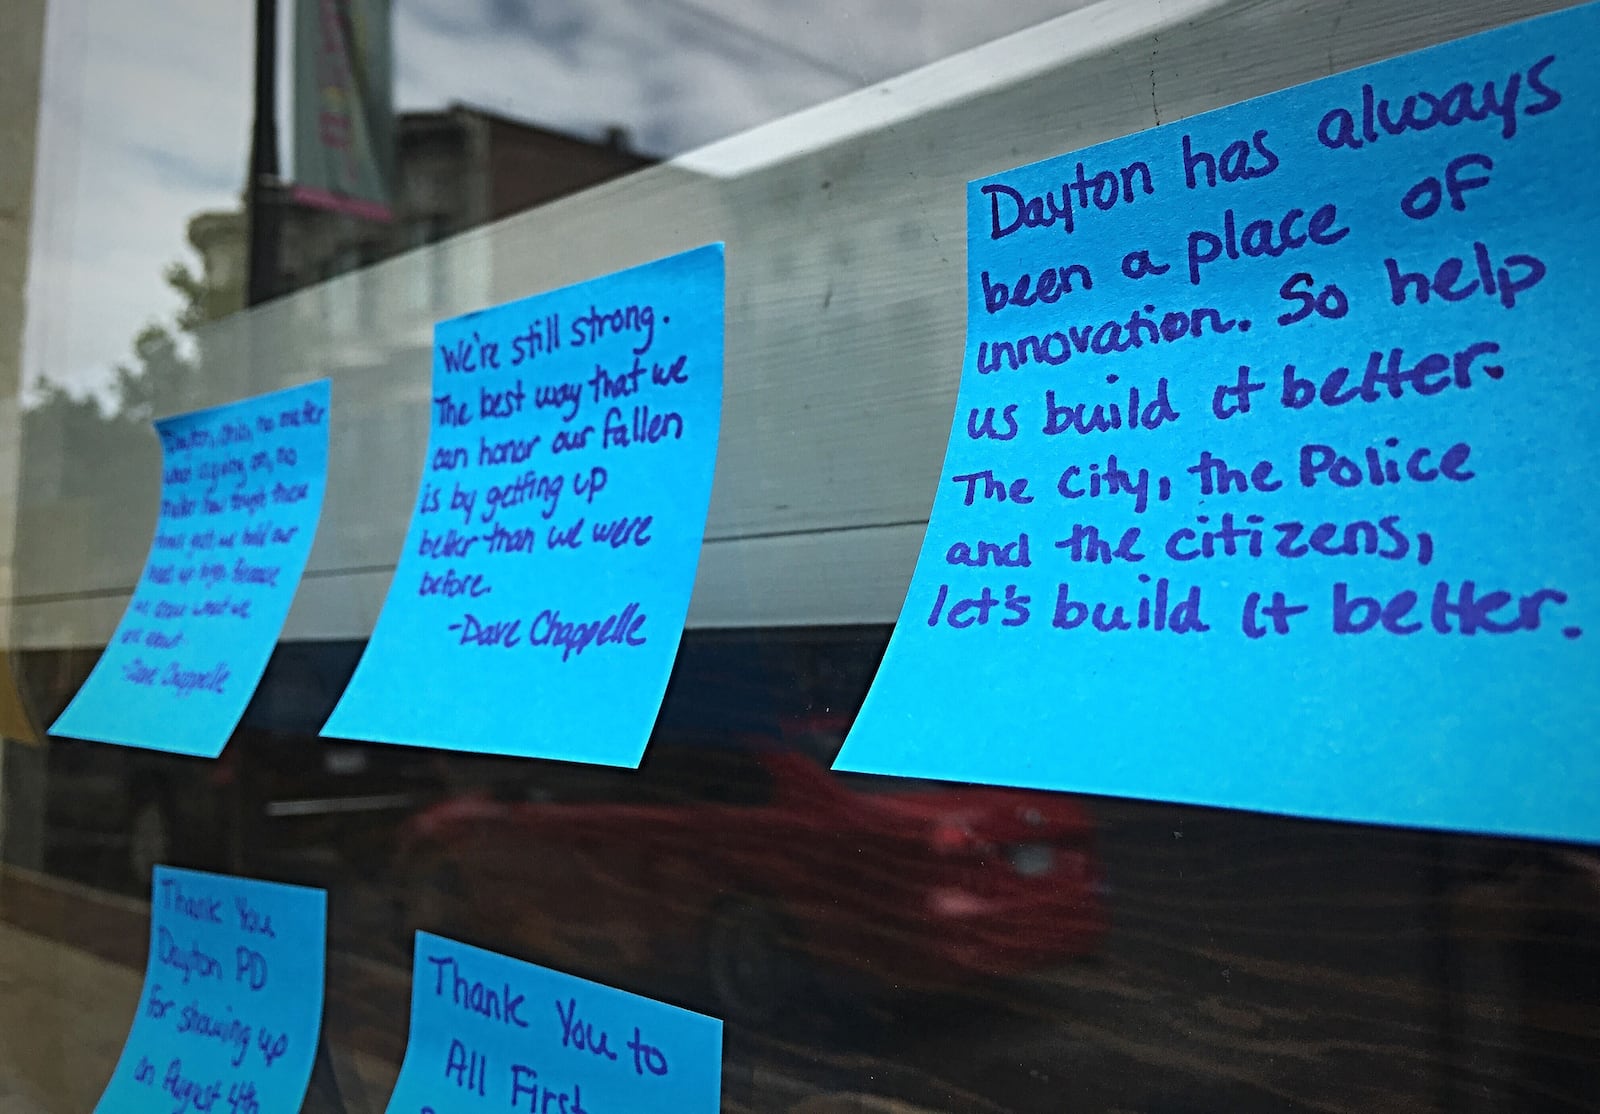 Dayton, Ohio, no matter
what is going on, no
matter how tough these
times get, we hold our
head up high. Because
we know what we
are about.
-Dave Chappelle
We're still strong.
The best way that we
can honor our fallen
is by getting up
better than we were
before.
-Dave Chappelle
Dayton has always
been a place of
innovation. So help
us build it better.
The city, the Police
and the citizens,
let's build it better.
Thank You
Dayton PD
for showing up
on August 4th
Thank You to
All First